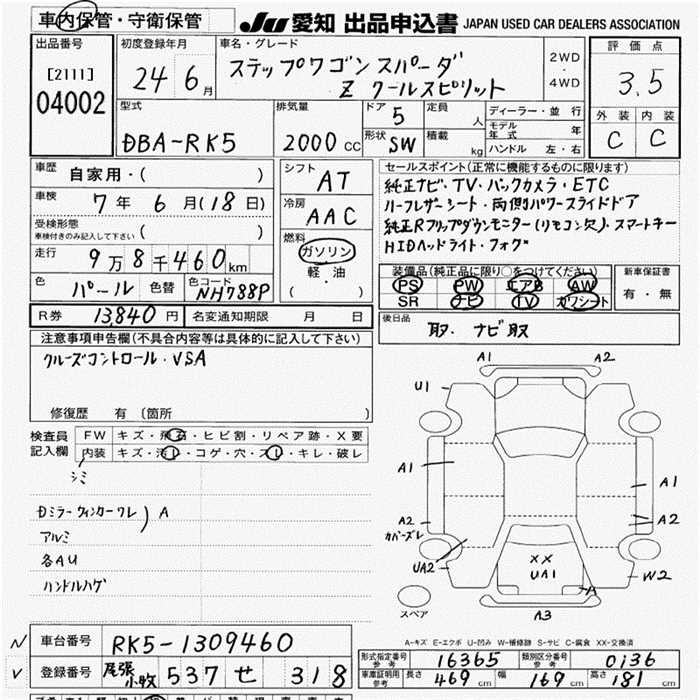 車内保管・守衛保管 JU 愛知 出品申込書 JAPAN USED CAR DEALERS ASSOCIATION
出品番号 初度登録年月 車名・グレード 評価点
[2111] 24 6月 ステップワゴン スパーダ 2WD・4WD 3.5
04002 Z クールスピリット
型式 排気量 ドア 5 定員 人 ディーラー・並行 外装 内装
DBA-RK5 2000 CC 形状 SW 積載 kg モデル年式 年 C C
ハンドル 左・右
車歴 自家用・( ) シフト AT セールスポイント(正常に機能するものに限ります)
車検 7年 6月(18日) 冷房 AAC 純正ナビ・TV・バックカメラ・ETC
受検形態 ( ) ハーフレザーシート・両側パワースライドドア
車検付きのみ記入して下さい 燃料 純正Rフリップダウンモニター(リモコン欠)・スマートキー
走行 9万8千460km ガソリン HIDヘッドライト・フォグ
色 パール 色替 色コード NH788P 軽・油 ( )
装備品(純正品に限り○をつけてください) 新車保証書
PS PW エアB AW 有・無
SR ナビ TV カワシート
R券 13,840円 名変通知期限 月 日 後日品 取・ナビ取
注意事項申告欄(不具合内容等は具体的に記入して下さい)
クルーズコントロール・VSA
修復歴 有 〔箇所 〕
検査員記入欄 FW キズ・飛石・ヒビ割・リペア跡・X要
内装 キズ・汚レ・コゲ・穴・スレ・キレ・破レ
シミ
Dミラーウィンカーワレ ) A
アルミ
各AU
ハンドルハゲ
A1 A2
U1
A1 A1
A2 A2
カバーズレ
UA2 XX UA1 W2
A
スペア A3
A-キズ E-エクボ U-凹み W-補修跡 S-サビ C-腐食 XX-交換済
車台番号 RK5-1309460
登録番号 尾張小牧 537 せ 318
形式指定番号 参考 16365 類別区分番号 参考 0136
車庫証明用 参考 長さ 469 cm 幅 169 cm 高さ 181 cm